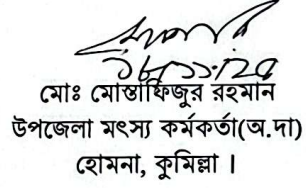 মোঃ মোস্তাফিজুর রহমান
উপজেলা মৎস্য কর্মকর্তা(অ.দা)
হোমনা, কুমিল্লা ।